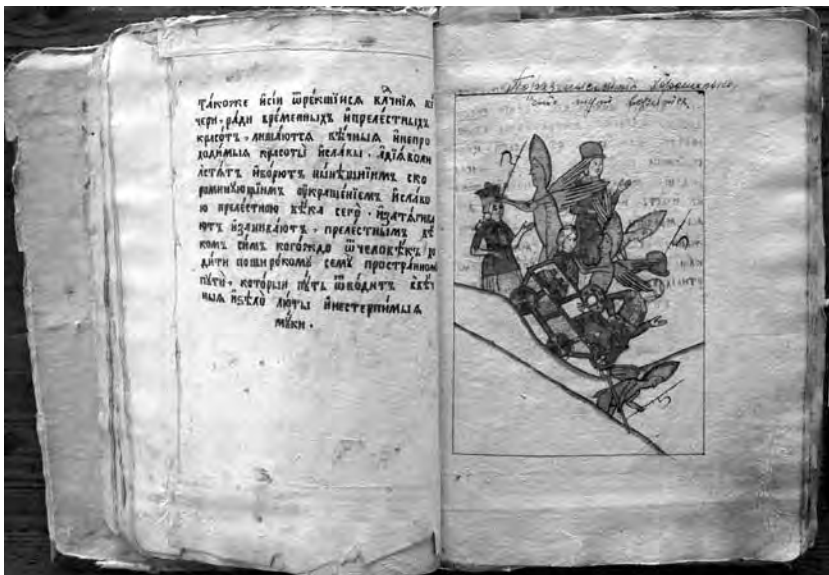 та́коже и҆сїи ѿре́кшїисѧ вⷣлчнїѧ ве
чери · ради временныхъ и҆прелестныхъ
красо́тъ · лишаютсѧ вѣ́чныѧ и҆непро
ходимыѧ красоты̀ и҆славы · А҆дїѧволи
лстѧ́тъ и҆бо́рютъ ны́нѣшнїимъ ско
роминꙋющимъ ᲂу҆краше́нїемъ и҆славо
ю прелестною вѣ́ка сегѡ̀ · и҆затѧгива
ютъ и҆заливаютъ · прелестнымъ вѣ
комъ симъ кого́ждо ѿчеловѣ́къ хо
дити поширокомꙋ семꙋ̀ пространномꙋ
пꙋтѝ · которыи пꙋ́ть ѿво́дитъ ввѣ́ч
ныѧ и҆ѕѣло̀ лю́ты и҆нестерпи́мыѧ
мꙋ́ки ·
Поразмышляйте хорошенько